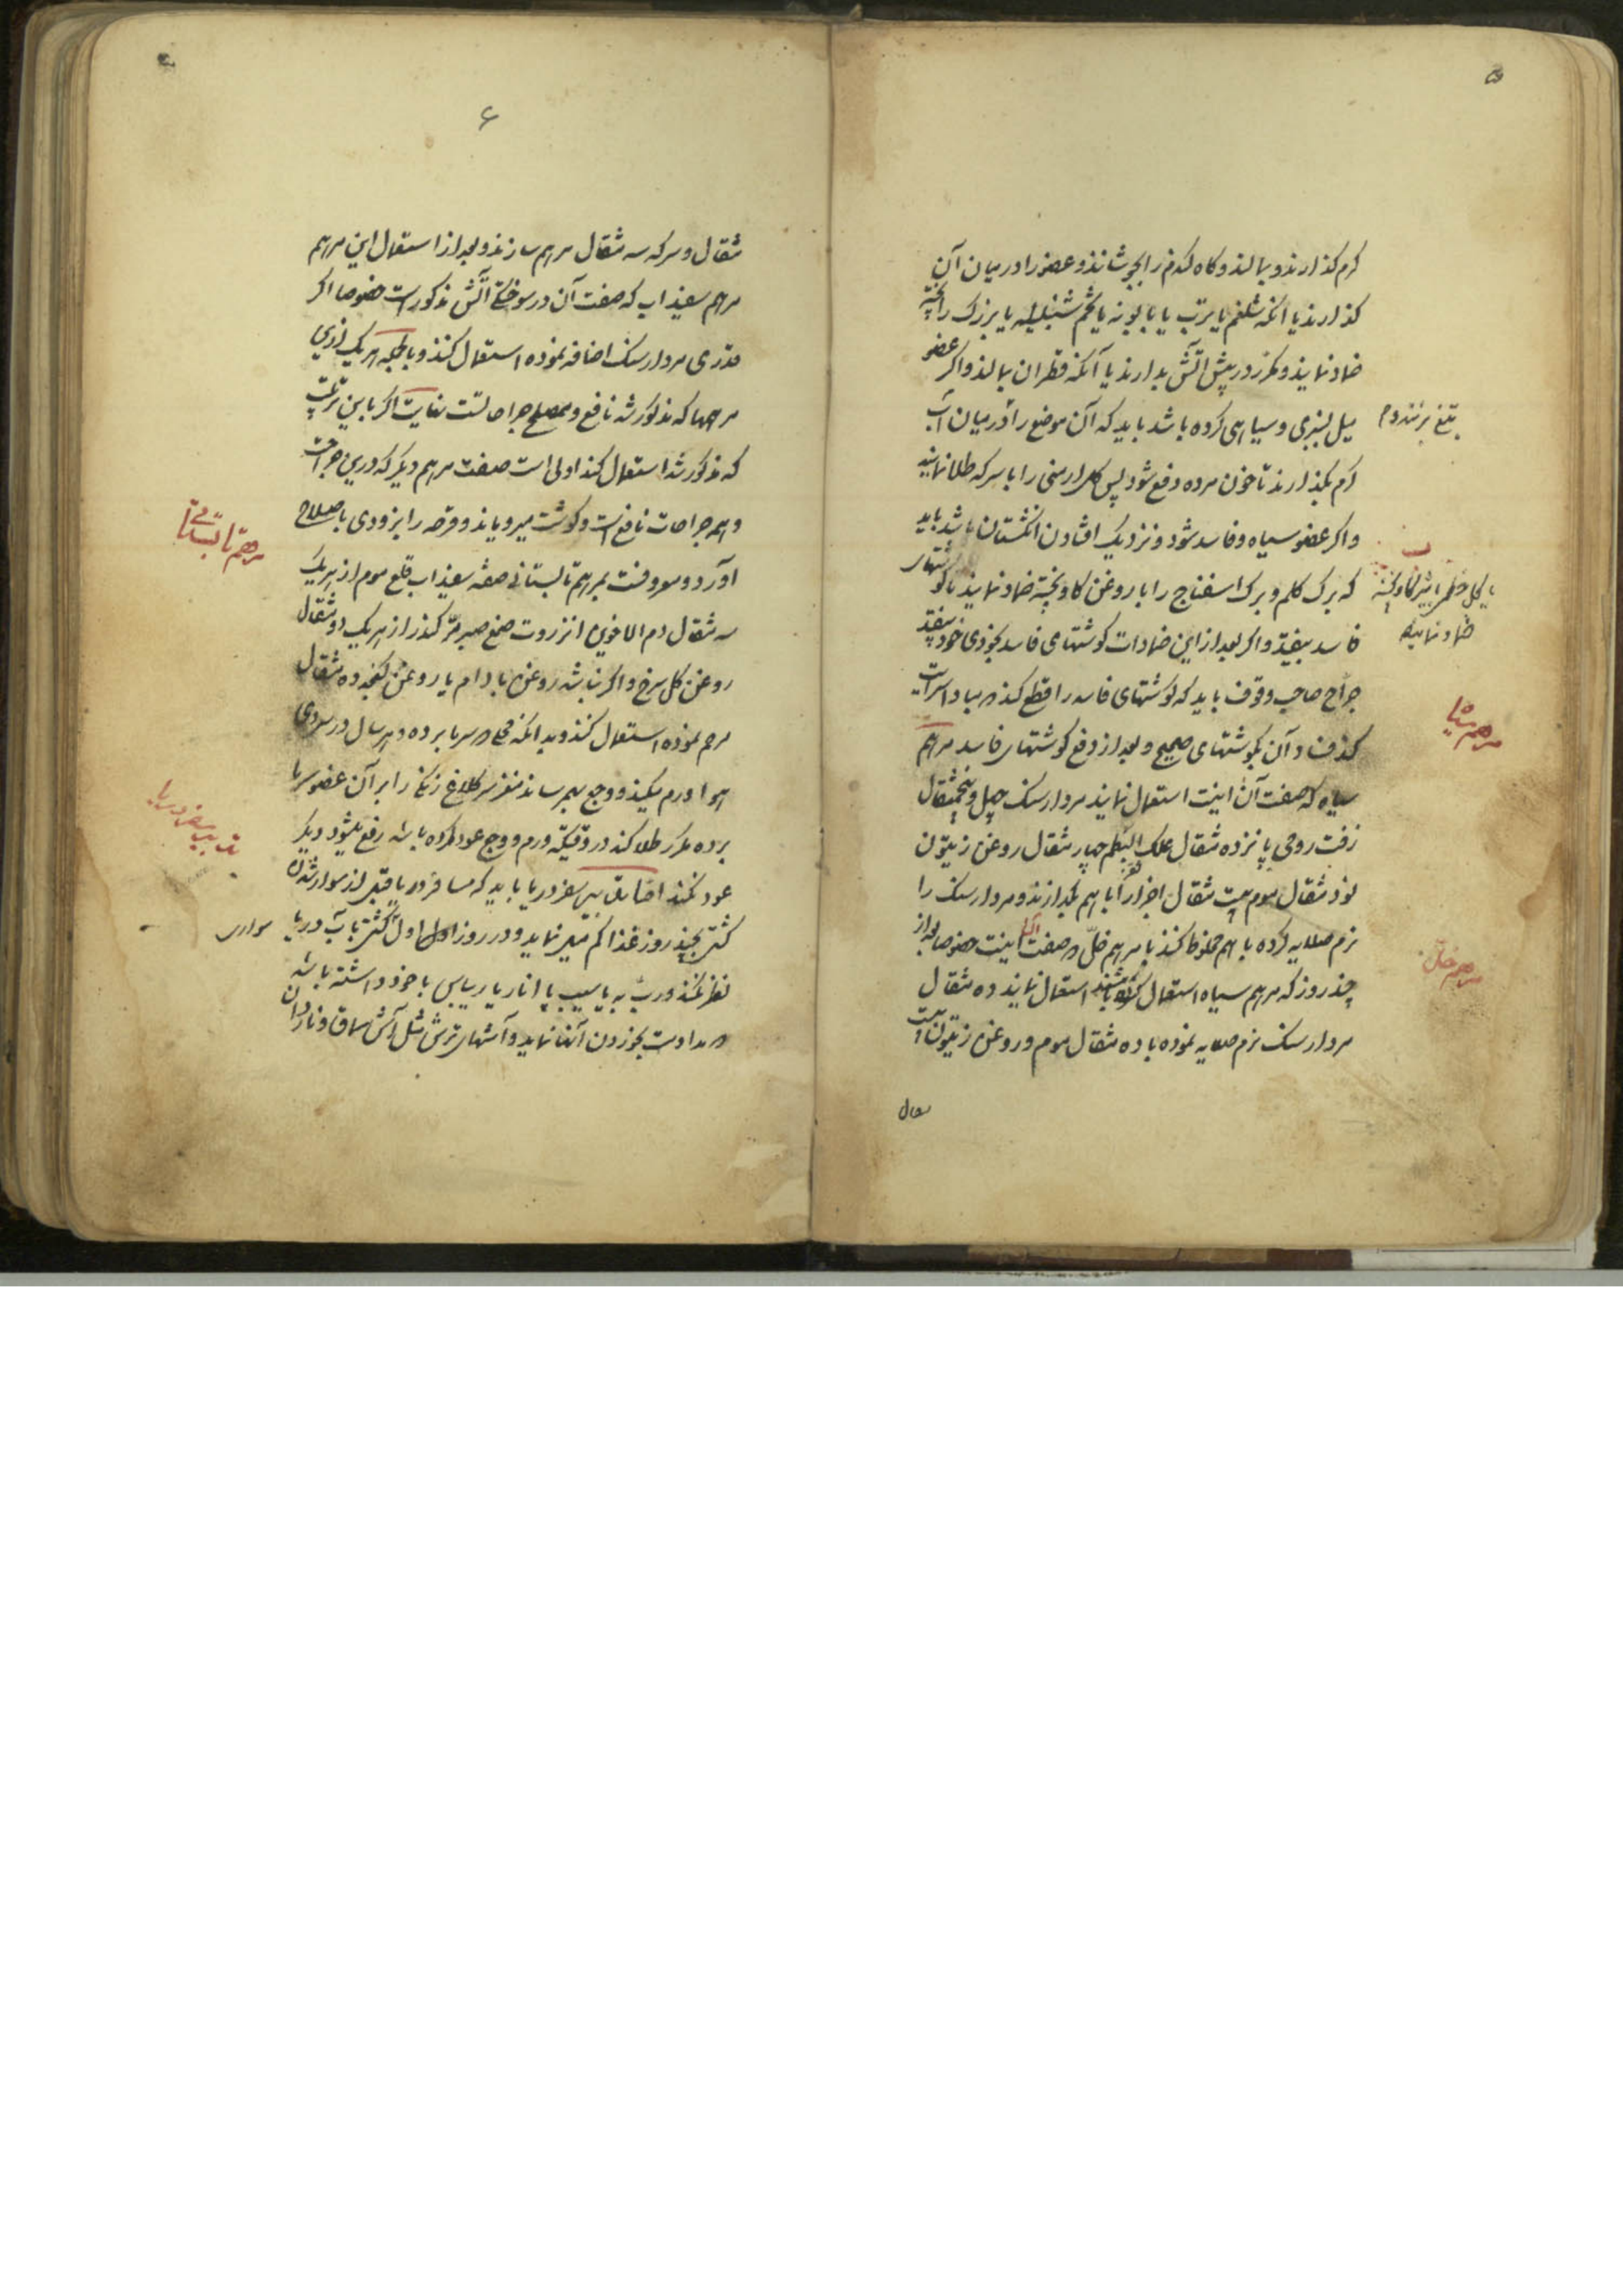 ۵
کرم کذارند و بمالند و کاه کندم را بجوشانند و عضو را در میان آن
کذارند یا انکه شلغم یا ترب یا بابونه یا تخم شنبلیله یا بزرک را پخته
ضماد نمایند و مکرر در پیش آتش بدارند یا آنکه قطران بمالند و اکر عضو
میل بسبزی و سیاهی کرده باشد باید که آن موضع را در میان آب
بتیغ بزنند و
کرم بکذارند تا خون مرده دفع شود پس کل ارمنی را با سرکه طلا نمایند
و اکر عضو سیاه و فاسد شود و نزدیک افتادن انکشتان باشد باید
که برک کلم و برک اسفناج را با روغن کاو پخته ضماد نمایند تا کوشتهای
یا کل خطمی با شیر کاو پخته
ضماد نمایند
فاسد بیفتد و اکر بعد از این ضمادات کوشتهای فاسد بخودی خود نیفتد
جراح صاحب وقوف باید که کوشتهای فاسد را قطع کند مبادا سرایت
کند فساد آن بکوشتهای صحیح و بعد از دفع کوشتهای فاسد مرهم
مرهم سیاه
سیاه که صفت آن اینست استعمال نمایند مردارسنک چهل و پنجمثقال
زفت رومی پانزده مثقال علک البطم چهار مثقال روغن زیتون
نود مثقال موم بیست مثقال اجزا را با هم بکدازند و مردارسنک را
نرم صلایه کرده با هم مخلوط کنند یا مرهم خلّ صفت اینست خصوصا بعد از
مرهم خل
چند روز که مرهم سیاه استعمال کرده باشند استعمال نمایند ده مثقال
مردارسنک نرم صلایه نموده با ده مثقال موم و روغن زیتون بیست
مثقال
۶
مثقال و سرکه سه مثقال مرهم سازند و بعد از استعمال این مرهم
مرهم سفیداب که صفت آن در سوختکی آتش مذکور است خصوصا اکر
قدری مردارسنک اضافه نموده استعمال کنند و بالجمله هر یک ازین
مرهمها که مذکور شد نافع و مصلح جراحاتست بغایت اکر باین ترتیب
که مذکور شد استعمال کنند اولی است صفت مرهم دیکر که درین جراحت
و همه جراحات نافع است و کوشت میرویاند و قرحه را بزودی باصلاح
مرهم تابستانی
آورد و معروفست بمرهم تابستانی صفته سفیداب قلع موم از هر یک
سه مثقال دم الاخوین انزروت صمغ صبر مرّ کندر از هر یک دو مثقال
روغن کل سرخ و اکر نباشد روغن بادام یا روغن کنجد ده مثقال
مرهم نموده استعمال کنند و بدانکه سرما برده هر سال در سردی
هوا ورم میکند و وجع بهم رساند مغز سر کلاغ زنکی را بر آن عضو سرما
برده مکرر طلا کنند در وقتیکه ورم و وجع عود کرده باشد رفع میشود دیکر
تدبیر سفر دریا
عود نکند سفر دریا باید که مسافر دریا قبل از سوار شدن
کشتی بچند روز غذا کم میل نماید و در روز اول کشتی بآب دریا
سواری
نظر نکند و ربّ به یا سیب یا انار یا ریباس با خود داشته باشد
مداومت بخوردن آنها نماید و آشهای ترش مثل آش سماق و ناردان